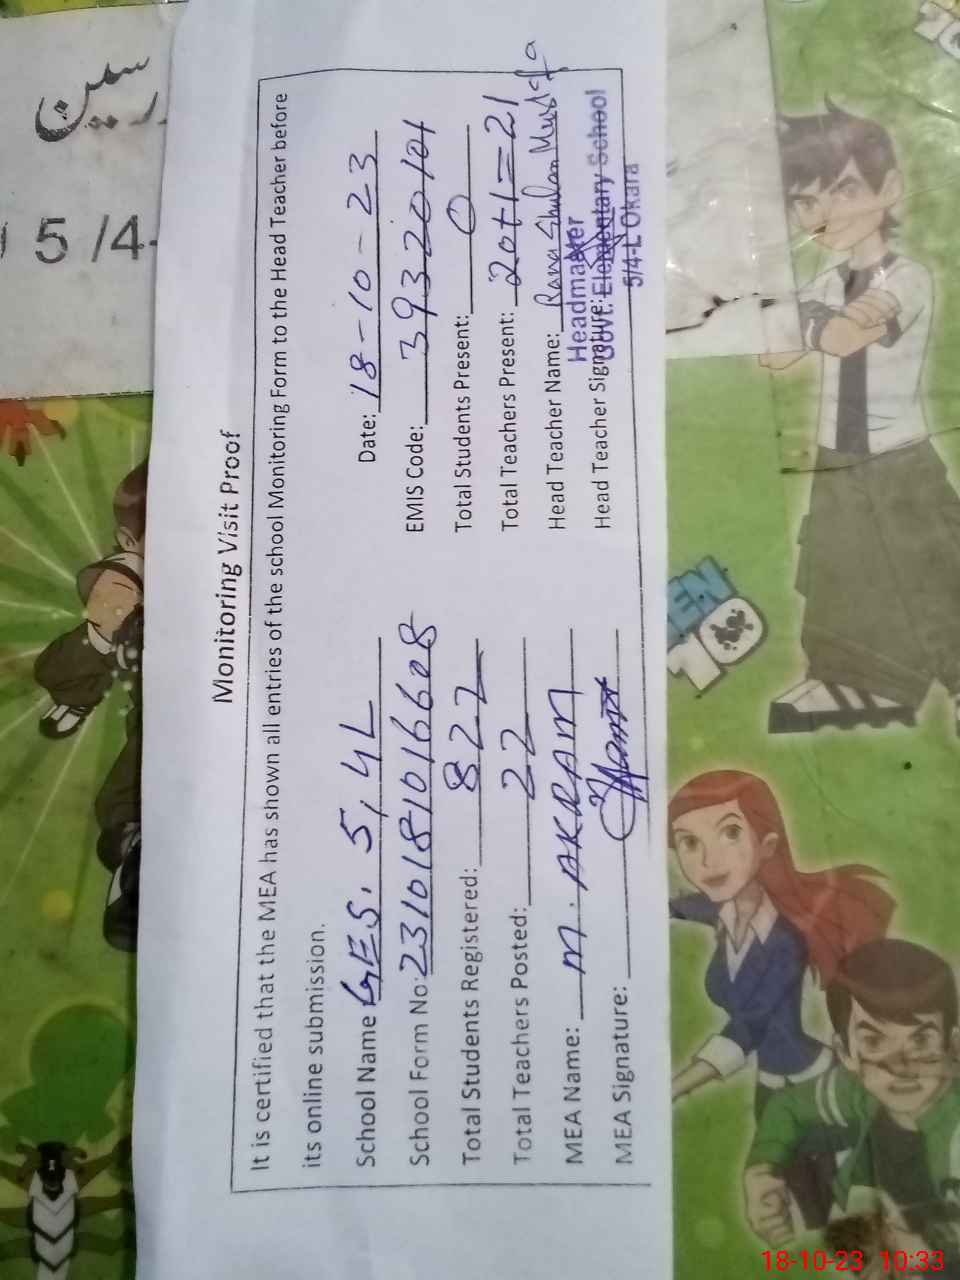 سلن
رسین
5/4-
Monitoring Visit Proof
It is certified that the MEA has shown all entries of the school Monitoring Form to the Head Teacher before
its online submission.
School Name GES. 5,4L Date: 18-10-23
School Form No: 2310181016608 EMIS Code: 39320101
Total Students Registered: 822 Total Students Present: 0
Total Teachers Posted: 22 Total Teachers Present: 20+1=21
MEA Name: M. AKRAM Head Teacher Name: Rana Ghulam Mustafa
MEA Signature: Head Teacher Signature:
Headmaster
Govt. Elementary School
5/4-L Okara
EN
10
18-10-23 10:33